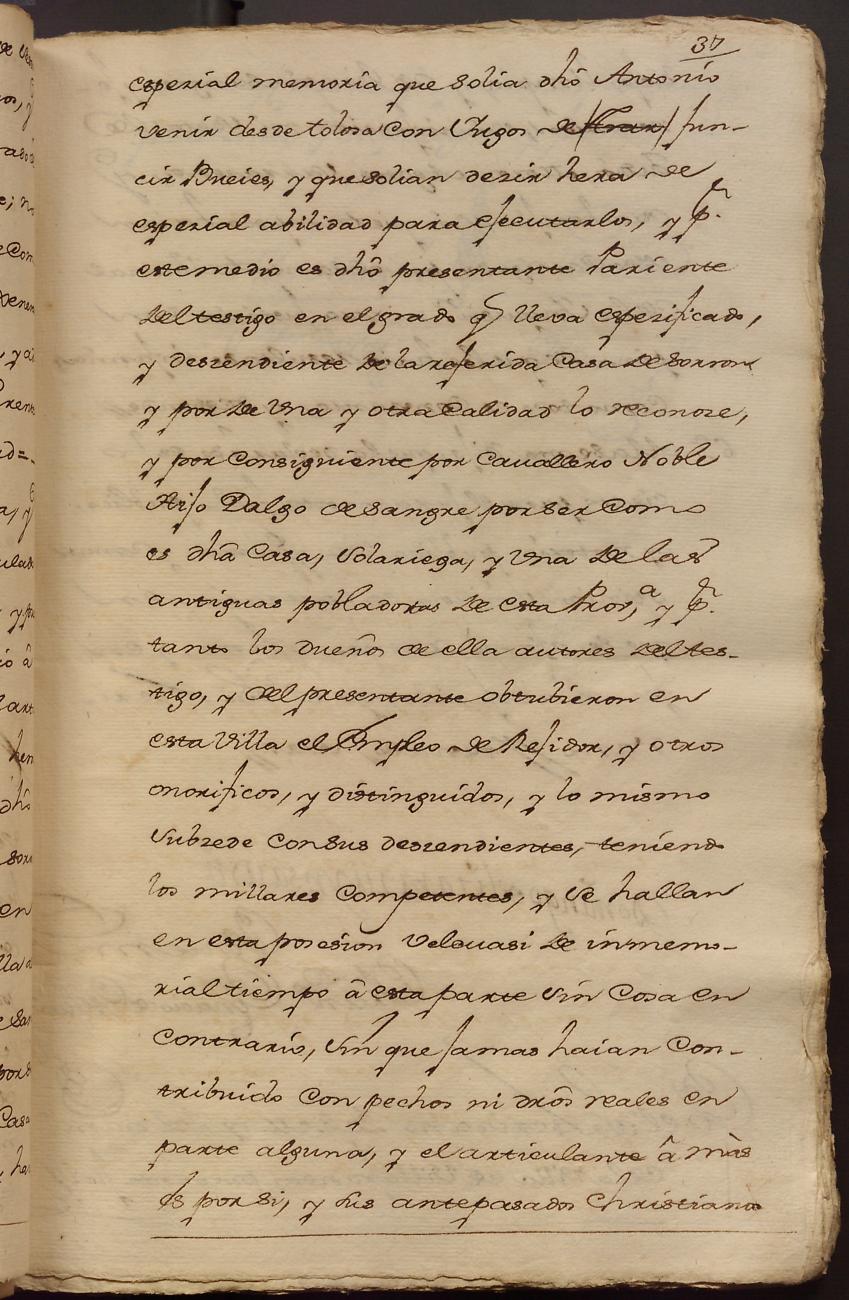 37
espezial memoria que solia dhō Antonio
venir desde tolosa con Yugos de Jun-
cir Bueies, y que solian dezir hera de
espezial abilidad para ejecutarlos, y p.r
este medio es dhō presentante Pariente
del testigo en el grado q lleva espezificado,
y deszendiente de la referida Casa de
y por de vna y otra calidad lo reconoze,
y por consiguiente por Cavallero Noble
Hijo Dalgo de sangre por ser como
es dhā Casa, Solariega, y vna de las
antiguas pobladoras de esta Prov,a y p.r
tanto los dueños de ella autores del tes-
tigo, y del presentante obtubieron en
esta Villa el Empleo de Rejidor, y otros
onorificos, y distinguidos, y lo mismo
Subzede con sus deszendientes, teniendo
los millares Competentes, y se hallan
en esta posesion velquasi de inmemo-
rial tiempo â esta parte sin cosa en
contrario, sin que jamas haian Con-
tribuido con pechos ni drōs reales en
parte alguna, y el articulante â màs
es por si, y sus antepasados Christiano